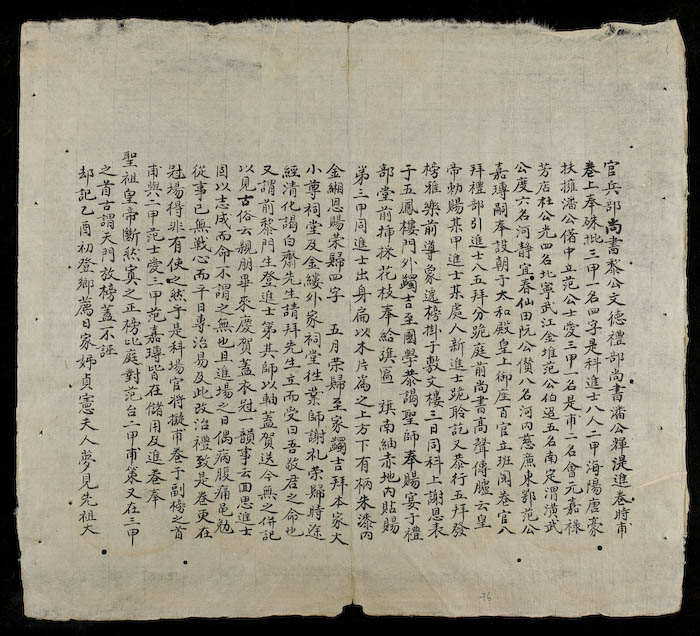 官兵部尚書黎公文德禮部尚書潘公輝湜進卷時甫
卷上奉硃批三甲一名四字是科進士八人二甲海陽唐豪
扶擁潘公偕中立范公士愛三甲一名是甫二名會元嘉祿
芳店杜公光四名北寧武江金堆范公伯選五名南定渭潢武
公度六名河靜宜春仙田阮公儧八名河內慈廉東鄂范公
嘉璹嗣奉設朝于太和殿皇上御座百官立班閱卷官八
拜禮部引進士八五拜分跪庭前尚書高聲傳臚云皇
帝勅賜某甲進士某處人新進士跪聆訖又恭行五拜發
榜雅樂前導象遞榜掛于敷文樓三日同科上謝恩表
于五鳳樓門外蠲吉至國學恭謁聖師奉賜宴于禮
部堂前揷抹花枝奉給旗匾 旗南紬赤地內貼賜
第三甲同進士出身扁以木片為之上方下有柄朱漆內
金緗恩賜榮歸四字 五月榮歸至家蠲吉拜本家大
小尊祠堂及金縷外家祠堂徃業師謝礼榮歸時途
經清化謁白齋先生請拜先生立而受曰吾敬君之命也
又謂前黎門生登進士第其師以軸蓋賀送今無之併記
以見古俗云親朋畢來慶賀蓋衣冠一韻事云回思進士
固以志成而命不謂之無也且進場之日偶病腹痛黽勉
從事已無戰心而平日專治易及此改治禮致是卷更在
尅場得非有使之然乎是科場官將擬甫卷于副榜之首
甫與二甲范士愛三甲范嘉璹皆在儲用及進卷奉
聖祖皇帝斷然寘之正榜比庭對范台二甲甫策又在三甲
之首古謂天門放榜蓋不誣
却記乙酉初登鄉薦日家姊貞憲夫人夢見先祖大